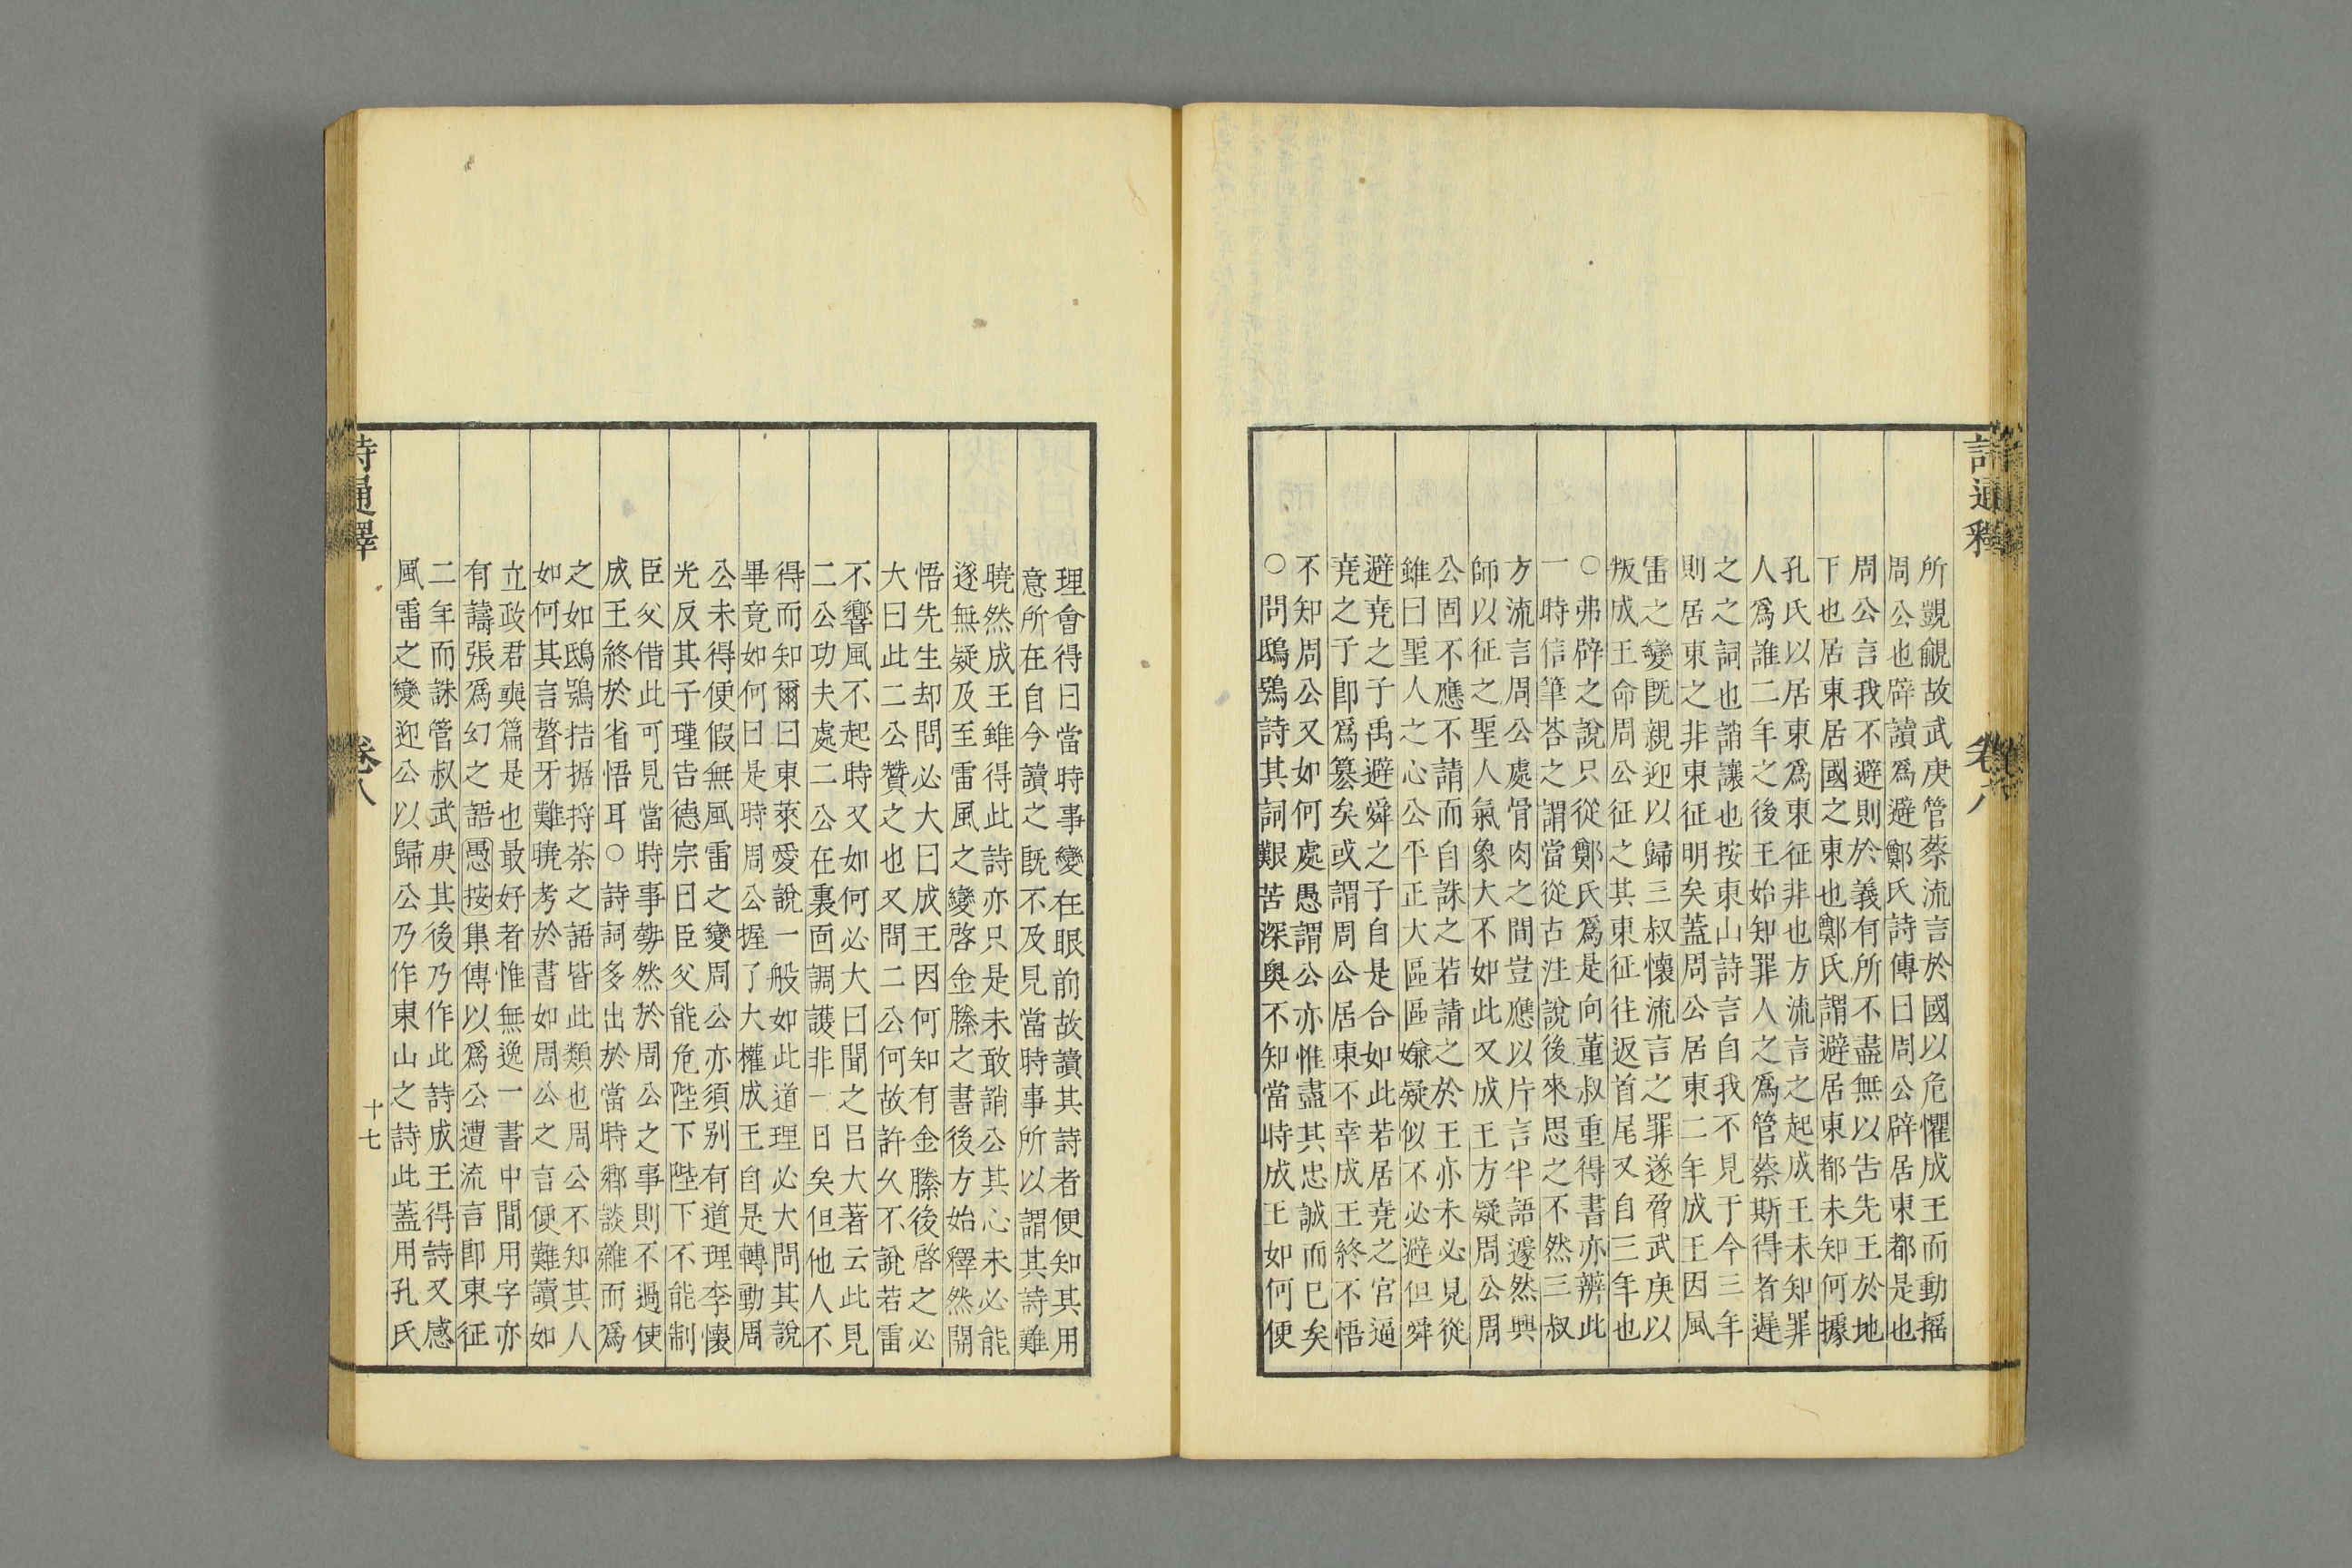 詩通釋
卷八
所覬覦故武庚管蔡流言於國以危懼成王而動揺
周公也辟讀爲避鄭氏詩傳曰周公辟居東都是也
周公言我不避則於義有所不盡無以告先王於地
下也居東居國之東也鄭氏謂避居東都未知何據
孔氏以居東爲東征非也方流言之起成王未知罪
人爲誰二年之後王始知罪人之爲管蔡斯得者遲
之之詞也誚讓也按東山詩言自我不見于今三年
則居東之非東征明矣蓋周公居東二年成王因風
雷之變旣親迎以歸三叔懷流言之罪遂脅武庚以
叛成王命周公征之其東征往返首尾又自三年也
○弗辟之說只從鄭氏爲是向董叔重得書亦辨此
一時信筆荅之謂當從古注說後來思之不然三叔
方流言周公處骨肉之間豈應以片言半語遽然興
師以征之聖人氣象大不如此又成王方疑周公周
公固不應不請而自誅之若請之於王亦未必見從
雖曰聖人之心公平正大區區嫌疑似不必避但舜
避堯之子禹避舜之子自是合如此若居堯之宮逼
堯之子卽爲篡矣或謂周公居東不幸成王終不悟
不知周公又如何處愚謂公亦惟盡其忠誠而已矣
○問鴟鴞詩其詞艱苦深奧不知當時成王如何便
理會得曰當時事變在眼前故讀其詩者便知其用
意所在自今讀之旣不及見當時事所以謂其詩難
曉然成王雖得此詩亦只是未敢誚公其心未必能
遂無疑及至雷風之變啓金縢之書後方始釋然開
悟先生却問必大曰成王因何知有金縢後啓之必
大曰此二公贊之也又問二公何故許久不說若雷
不響風不起時又如何必大曰聞之呂大著云此見
二公功夫處二公在裏面調護非一日矣但他人不
得而知爾曰東萊愛說一般如此道理必大問其說
畢竟如何曰是時周公握了大權成王自是轉動周
公未得便假無風雷之變周公亦須别有道理李懷
光反其子璀告德宗曰臣父能危陛下陛下不能制
臣父借此可見當時事勢然於周公之事則不過使
成王終於省悟耳○詩詞多出於當時鄉談雜而爲
之如鴟鴞拮据捋荼之語皆此類也周公不知其人
如何其言聱牙難曉考於書如周公之言便難讀如
立政君奭篇是也最好者惟無逸一書中間用字亦
有譸張爲幻之語愚按集傳以爲公遭流言卽東征
二年而誅管叔武庚其後乃作此詩成王得詩又感
風雷之變迎公以歸公乃作東山之詩此蓋用孔氏
詩通釋
卷八
十七